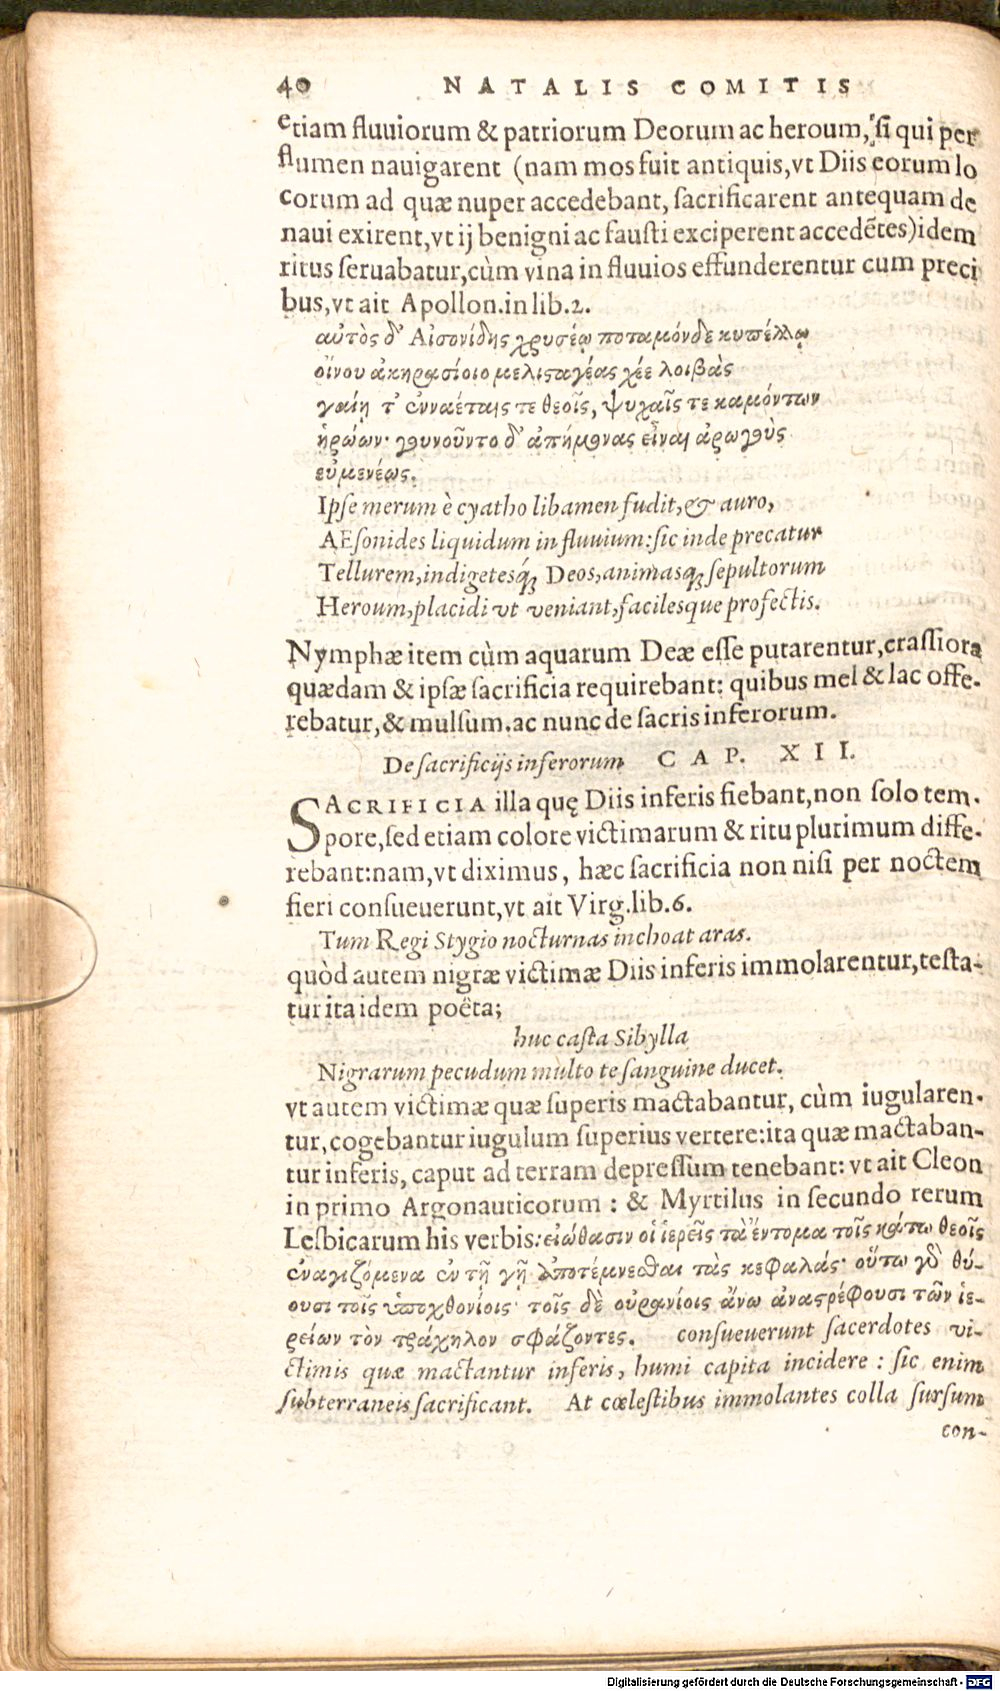 40 NATALIS COMITIS
etiam fluuiorum & patriorum Deorum ac heroum, si qui per
flumen nauigarent (nam mos fuit antiquis, vt Diis eorum lo
corum ad quæ nuper accedebant, sacrificarent antequam de
naui exirent, vt ij benigni ac fausti exciperent accedẽtes) idem
ritus seruabatur, cùm vina in fluuios effunderentur cum preci
bus, vt ait Apollon. in lib. 2.
αὐτὸς δ' Αἰσονίδης χρυσέῳ ποταμόνδε κυπέλλῳ
οἴνου ἀκηρασίοιο μελισταγέας χέε λοιβὰς
γαίῃ τ' ἐνναέταις τε θεοῖς, ψυχαῖς τε καμόντων
ἡρώων· γουνοῦντο δ' ἀπήμονας εἶναι ἀρωγοὺς
εὐμενέως.
Ipse merum è cyatho libamen fudit, & auro,
AEsonides liquidum in fluuium: sic inde precatur
Tellurem, indigetesq́; Deos, animasq; sepultorum
Heroum, placidi vt veniant, facilesque profectis.
Nymphæ item cùm aquarum Deæ esse putarentur, crassiora
quædam & ipsæ sacrificia requirebant: quibus mel & lac offe-
rebatur, & mulsum. ac nunc de sacris inferorum.
De sacrificijs inferorum CAP. XII.
SACRIFICIA illa quę Diis inferis fiebant, non solo tem-
pore, sed etiam colore victimarum & ritu plurimum diffe-
rebant: nam, vt diximus, hæc sacrificia non nisi per noctem
fieri consueuerunt, vt ait Virg. lib. 6.
Tum Regi Stygio nocturnas inchoat aras.
quòd autem nigræ victimæ Diis inferis immolarentur, testa-
tur ita idem poëta;
huc casta Sibylla
Nigrarum pecudum multo te sanguine ducet.
vt autem victimæ quæ superis mactabantur, cùm iugularen-
tur, cogebantur iugulum superius vertere: ita quæ mactaban-
tur inferis, caput ad terram depressum tenebant: vt ait Cleon
in primo Argonauticorum : & Myrtilus in secundo rerum
Lesbicarum his verbis: εἰώθασιν οἱ ἱερεῖς τὰ ἔντομα τοῖς κάτω θεοῖς
ἐναγιζόμενα ἐν τῇ γῇ ἀποτέμνεσθαι τὰς κεφαλάς· οὕτω γὸ θύ-
ουσι τοῖς ὑποχθονίοις· τοῖς δὲ οὐρανίοις ἄνω ἀναστρέφουσι τῶν ἱε-
ρείων τὸν τράχηλον σφάζοντες. consueuerunt sacerdotes vi-
ctimis quæ mactantur inferis, humi capita incidere : sic enim
subterraneis sacrificant. At cœlestibus immolantes colla sursum
con-
Digitalisierung gefördert durch die Deutsche Forschungsgemeinschaft - DFG